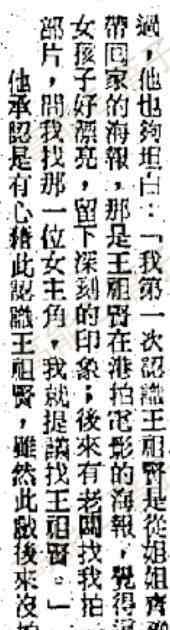 過，他也夠坦白：「我第一次認識王祖賢是從姐姐
帶回家的海報，那是王祖賢在港拍電影的海報，覺得這
女孩子好漂亮，留下深刻的印象；後來有老闆找我拍一
部片，問我找那一位女主角，我就提議找王祖賢。」
他承認是有心藉此認識王祖賢，雖然此戲後來沒拍